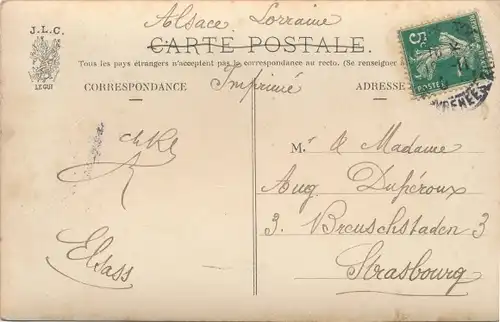 Alsace Lorraine
J.L.C.
CARTE POSTALE.
LE GUI
Tous les pays étrangers n'acceptent pas la correspondance au recto. (Se renseigner
Imprimé
CORRESPONDANCE
ADRESSE
5
POSTES
M. & Madame
Aug. Dupéroux
3. Breuschstaden 3
Strasbourg
Elsass